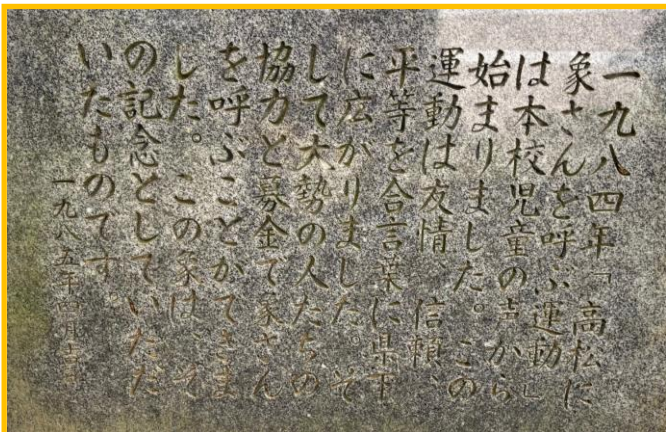 一九八四年「高松に
象さんを呼ぶ運動」
は本校児童の声から
始まりました。この
運動は友情、信頼、
平等を合言葉に県下
に広がりました。そ
して大勢の人たちの
協力と募金で象さん
を呼ぶことができま
した。この象は、そ
の記念としていただ
いたものです。
一九八五年四月吉日